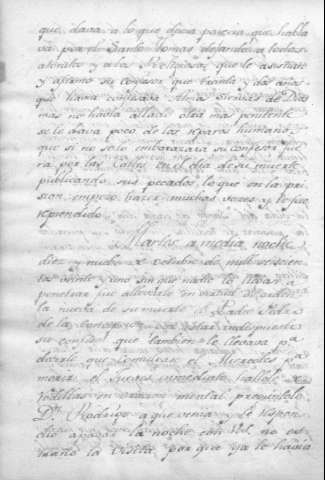 que, dava, a lo que decia parecia que habla
va por el Santo Tomas dejando a todos
atonitos y a los Religiosos que le asistian
y afirmo su confesor que treinta y dos años
que havia confesava Almas siervas de Dios
mas no havia allado otra mas penitente
se le dava poco de los reparos humanos
que si no solo embarazara su confesor fue
ra por las Calles en el dia de su muerte
publicando sus pecados, lo que en la pri
sion empezo hacer muchas veces y lo fue
reprendido
Martes a media noche
diez y nuebe de octubre de mil seiscien
tos veinte y uno sin que nadie lo llegara a
penetrar fue
la nueba de su muerte el Padre Pedro
de la Concepcion por estar indispuesto
su confesor que tambien le llevava pa
decirle que comulgase el Miercoles pa
morir el Jueves inmediato hallole de
rodillas en oracion mental preguntole
Dn Rodrigo a que venia y le respon
dio a pasar la noche con Vd. no es
traño la visita por que ya le havia